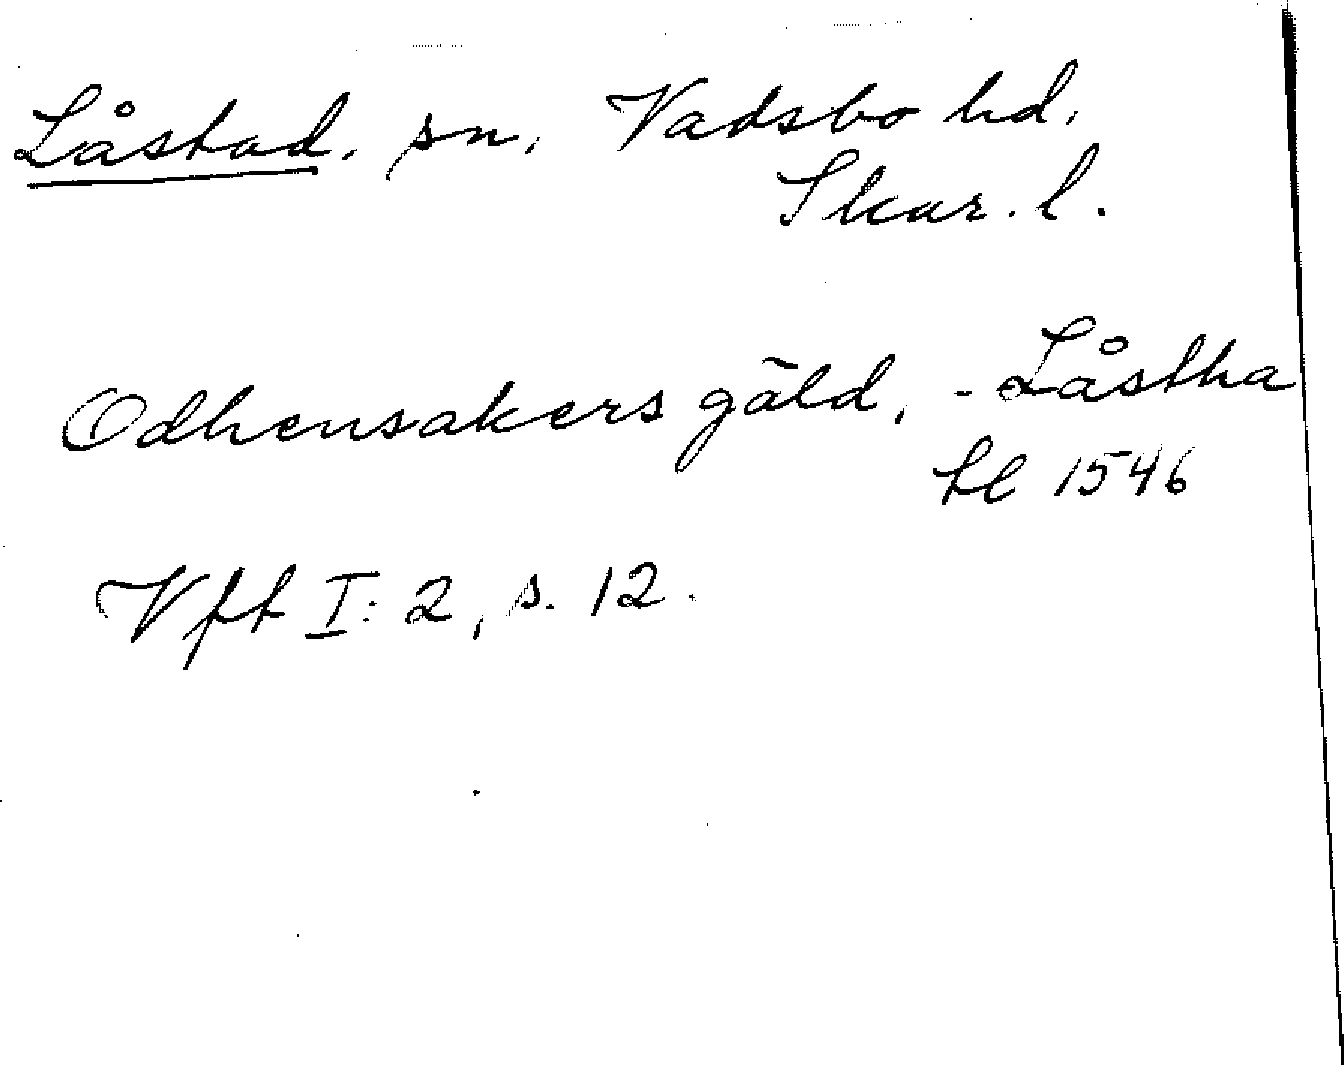 Låstad. sn. Vadsbo hd.
Skar. l.
Odhensakers gäld, - Låstha
hl 1546
Vft I: 2, s. 12.